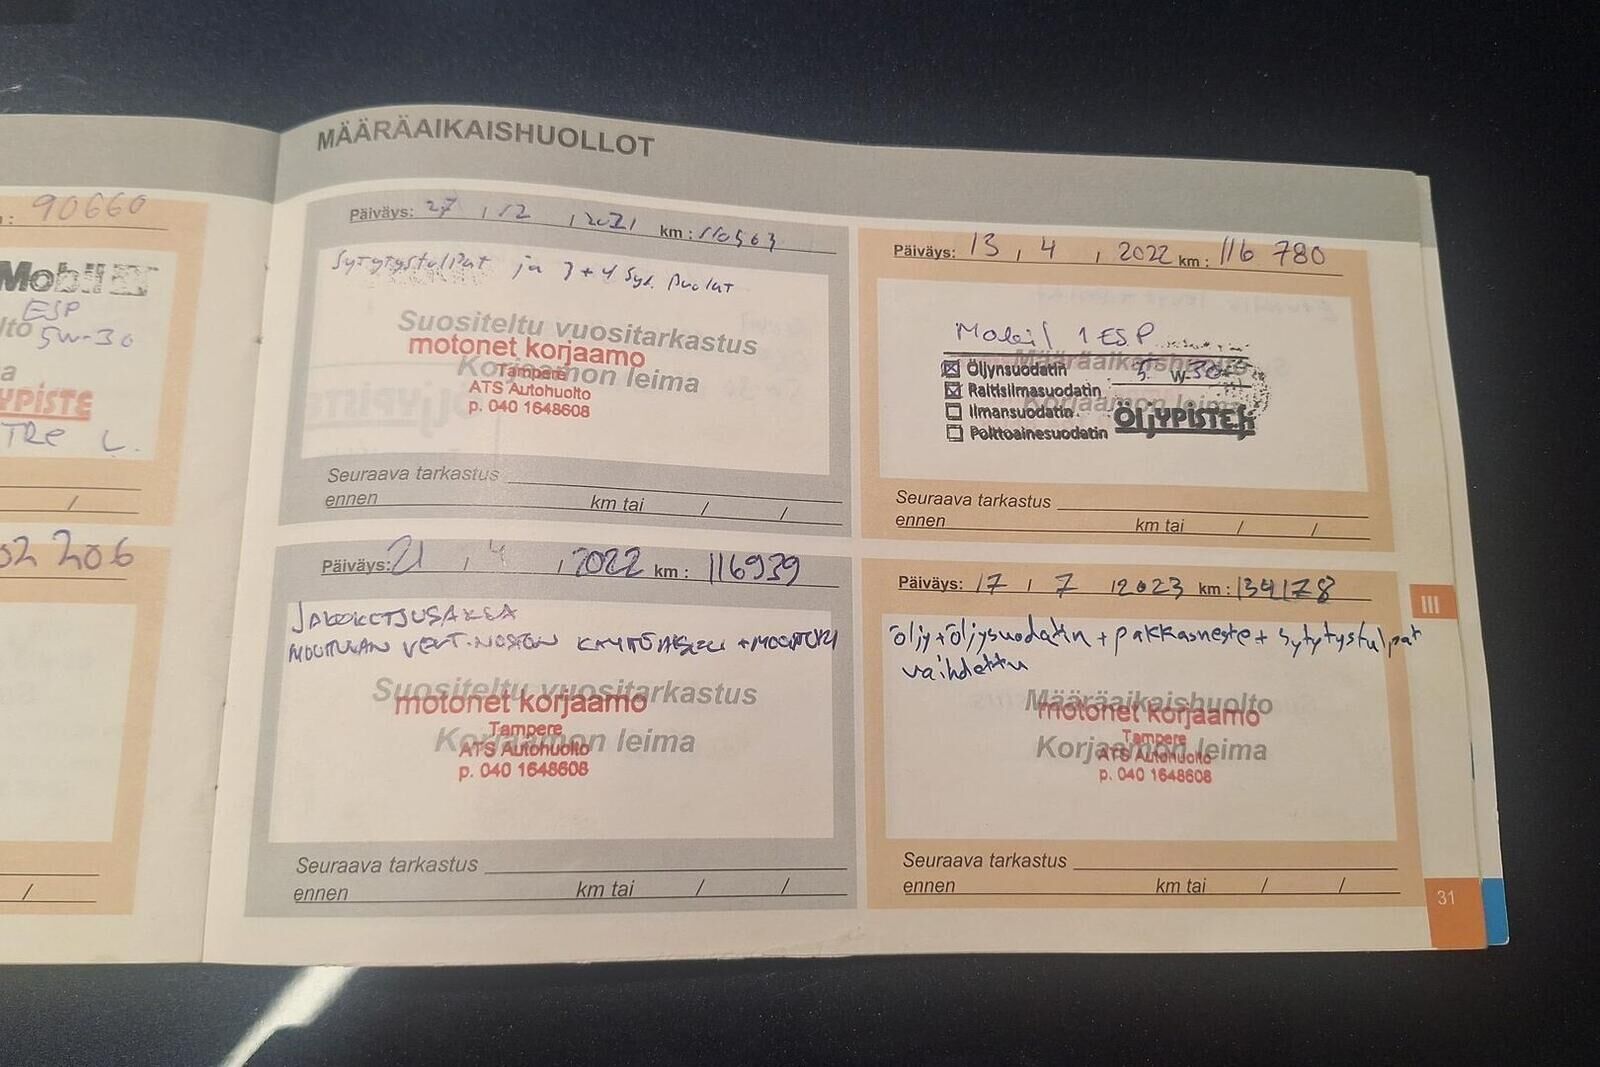 MÄÄRÄAIKAISHUOLLOT
: 90660
Mobil
ESP
5W-30
YPISTE
TRE L.
/
02 206
/
Päiväys: 27 / 12 / 2021 km : 110563
Sytytystulpat ja 3+4 Syl. Puolat
Suositeltu vuositarkastus
motonet korjaamo
Korjaamon leima
Tampere
ATS Autohuolto
p. 040 1648608
Seuraava tarkastus
ennen km tai / /
Päiväys: 13 , 4 , 2022 km : 116 780
Mobil 1 ESP
Määräaikaishuolto
Öljynsuodatin 5 W-30
Raitisilmasuodatin
Korjaamon leima
Ilmansuodatin
ÖLJYPISTE
Polttoainesuodatin
Seuraava tarkastus
ennen km tai / /
Päiväys: 21 / 4 / 2022 km : 116939
JAKOKETJUSARJA
MOOTTORI
Suositeltu vuositarkastus
motonet korjaamo
Tampere
Korjaamon leima
ATS Autohuolto
p. 040 1648608
Seuraava tarkastus
ennen km tai / /
Päiväys: 17 / 7 / 2023 km : 134178
öljy+öljysuodatin + pakkasneste + sytytystulpat
vaihdettu
Määräaikaishuolto
motonet korjaamo
Tampere
Korjaamon leima
ATS Autohuolto
p. 040 1648608
Seuraava tarkastus
ennen km tai / /
III
31